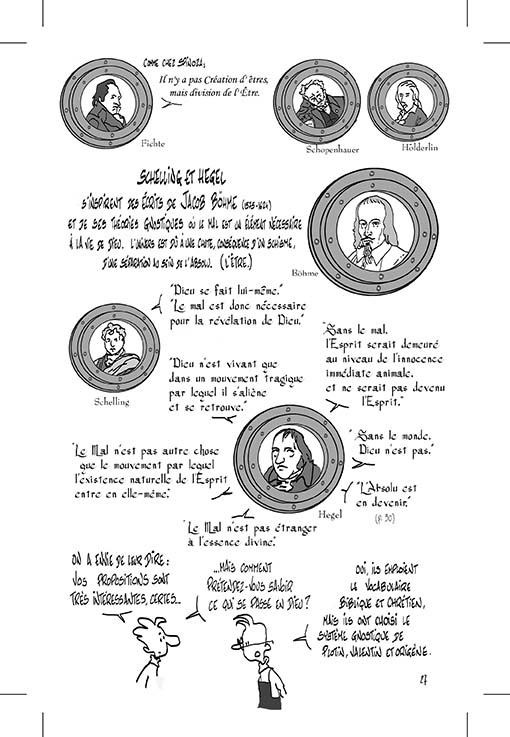 COMME CHEZ SPINOZA,
Il n'y a pas Création d'êtres,
mais division de l'Être.
Fichte
Schopenhauer
Hölderlin
SCHELLING ET HEGEL
S'INSPIRENT DES ÉCRITS DE JACOB BÖHME (1575-1624)
ET DE SES THÉORIES GNOSTIQUES OÙ LE MAL EST UN ÉLÉMENT NÉCESSAIRE
À LA VIE DE DIEU. L'UNIVERS EST DÛ A UNE CHUTE, CONSÉQUENCE D'UN SCHISME,
D'UNE SÉPARATION AU SEIN DE L'ABSOLU. (L'ÊTRE.)
Böhme
"Dieu se fait lui-même."
"Le mal est donc nécessaire
pour la révélation de Dieu."
Schelling
"Sans le mal,
l'Esprit serait demeuré
au niveau de l'innocence
immédiate animale,
et ne serait pas devenu
l'Esprit."
"Dieu n'est vivant que
dans un mouvement tragique
par lequel il s'aliène
et se retrouve."
"Le Mal n'est pas autre chose
que le mouvement par lequel
l'existence naturelle de l'Esprit
entre en elle-même."
"Sans le monde,
Dieu n'est pas."
"L'Absolu est
en devenir."
(p. 30)
Hegel
"Le Mal n'est pas étranger
à l'essence divine."
ON A ENVIE DE LEUR DIRE :
VOS PROPOSITIONS SONT
TRÈS INTÉRESSANTES, CERTES...
...MAIS COMMENT
PRÉTENDEZ-VOUS SAVOIR
CE QUI SE PASSE EN DIEU ?
OUI, ILS EMPLOIENT
LE VOCABULAIRE
BIBLIQUE ET CHRÉTIEN,
MAIS ILS ONT CHOISI LE
SYSTÈME GNOSTIQUE DE
PLOTIN, VALENTIN ET ORIGÈNE.
27